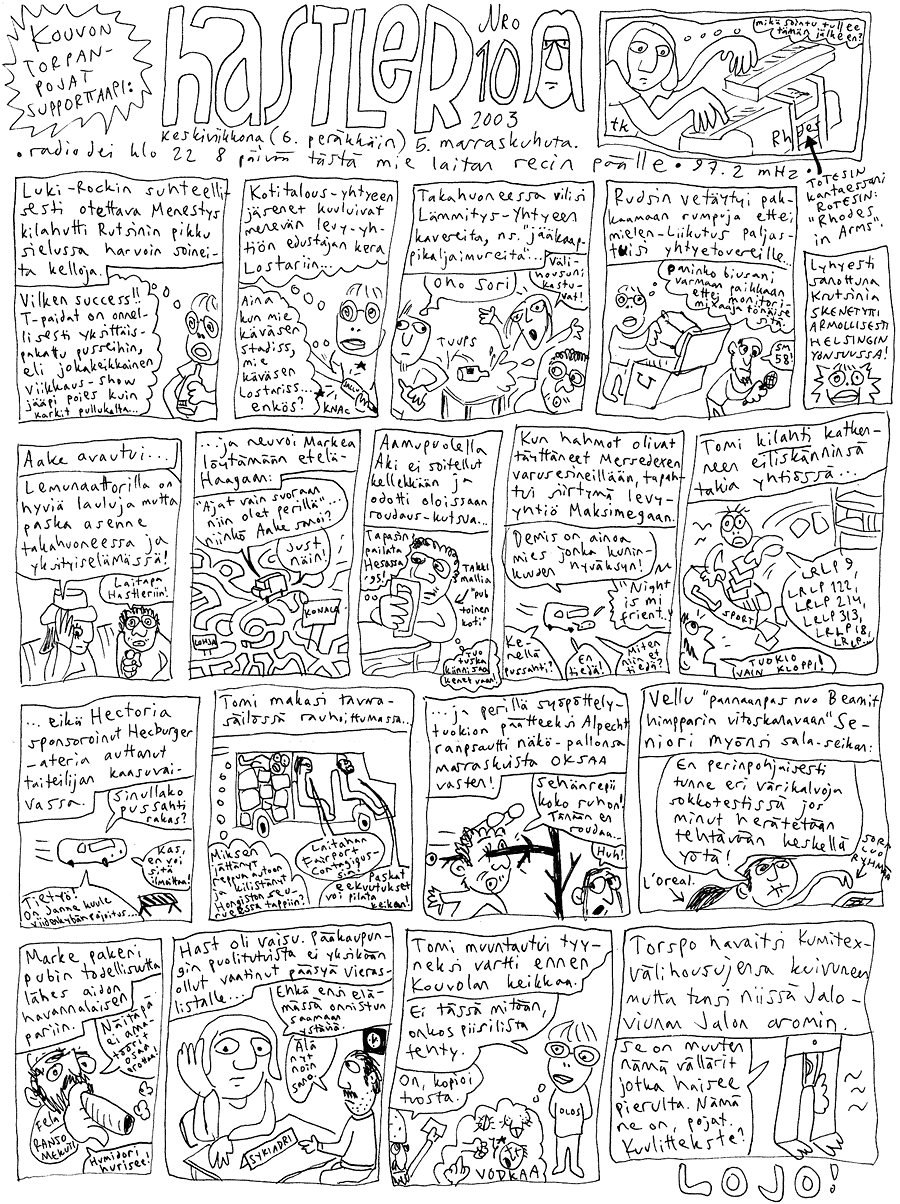 KOUVON
TORPAN-
POJAT
SUPPORTTAAPI:
HASTLER
NRO
10
2003
mikä sointu tullee
tämän jälkeen?
tk
Rh pet
keskiviikkona (6. peräkkäin) 5. marraskuhuta.
• radio dei klo 22 8 päivää tästä mie laitan recin päälle • 97.2 mHz •
TOTESIN
kantaessani
ROTESIN:
"Rhodes
in Arms"
Luki-Rockin suhteelli-
sesti otettava Menestys
kilahutti Rutsinin pikku
sielussa harvoin soinei-
ta kelloja.
Vilken success!!
T-paidat on onnel-
lisesti yksittäis-
pakattu pusseihin,
eli jokakeikkainen
viikkaus-show
jääpi poies kuin
karkit pullukalta...
Kotitalous-yhtyeen
jäsenet kuuluivat
menevän levy-yh-
tiön edustajan kera
Lostariin...
Aina
kun mie
käväsen
stadiss,
mie
käväsen
Lostariss...
enkös?
KNAC
Takahuoneessa vilisi
Lämmitys-Yhtyeen
kavereita, ns. "jääkaap-
pikaljaimureita"...
Oho sori!
Väli-
housuni
kastu-
vat!
TUUPS
Rudsin vetäytyi pak-
kaamaan rumpuja ettei
mielen-liikutus paljas-
tuisi yhtyetovereille...
paninko biusani
varmaan paikkaan
ettei monitori-
miksaaja tönäise
sitä.
SM
58!
Lyhyesti
sanottuna
Krutsinia
SKENETYTTI
ARMOLLISESTI
HELSINGIN
YÖN SUUSSA!
Aake avautui...
Lemunaattorilla on
hyviä lauluja mutta
paska asenne
takahuoneessa ja
yksityiselämässä!
Laitapa
Hästleriin!
...ja neuvoi Markea
löytämään etelä-
Haagaan:
"Ajat vain suoraan
niin olet perillä"...
niinkö Aake sanoi?
Just
näin!
KONALA
KONJA
Aamupuolella
Aki ei soitellut
kellekkään ja
odotti oloissaan
roudaus-kutsua...
Tapasin
pailata
Hesassa
'95!
Takki
mallia
"pub
toinen
koti"
Tuo
tuska
kännissaa
kenet vaan!
Kun hahmot olivat
täyttäneet Mersedexen
varusesineillään, tapah-
tui siirtymä levy-
yhtiö Maksimegaan.
Demis on ainoa
mies jonka kunin-
kuuden nyväksyn!
"Night
is mi
frient"!
Ke-
nellä
pussahti?
En
tiedä!
Miten
niin et
tiedä?
Tomi kilahti katken-
neen eiliskänninsä
takia yhtiössä...
SPORT
LRLP 9,
LRLP 122,
LRLP 214,
LRLP 313,
LRLP 18,
LRLP...
TUOKIO
VAIN KLOPPI!
... eikä Hectoria
sponsoroinut Hecburger
-ateria auttanut
taiteilijan kaasuvai-
vassa.
Sinullako
pussahti
rakas?
Kas,
en voi
sitä
ilmattaa!
Tietyö!
on Janne kuule
viidenkybän rajoitus...
Tomi makasi tavara-
säilössä rauhoittumassa...
Miksen
jättänyt
reppua autoon
ja kilistänyt
Hongiston seu-
rueessa tappiin?
Laitahan
Fairport
Contagius-
sin!
Paskat
eekuutukset
voi pilata
keikan!
...ja perillä syöpöttely-
tuokion päätteeksi Alpecht
ranpsautti näkö-pallonsa
marraskuista OKSAA
vasten!
Sehänrepii
koko ruhon!
Tänään en
roudaa...
Huh!
Vellu "pannaanpas nuo Beamit
himpparin vitoskanavaan" Se-
niori myönsi sala-seikan:
En perinpohjaisesti
tunne eri värikalvoja
sokkotestissä jos
minut herätetään
tehtävään keskellä
yötä!
SORA
LOR
RYHMÄ
L'oreal.
Marke pakeni
pubin todellisuutta
lähes aidon
havannalaisen
pariin.
Näitäpä
ei ama-
tössit
osaa
arottaa!
FELA
RANSO
MEKUTI
Humidori
hurisee!
Hast oli vaisu. Pääkaupun-
gin puolitutuista ei yksikään
ollut vaatinut pääsyä vieras-
listalle...
Ehkä ensi elä-
mässä onnistun
saamaan
ystäviä.
Älä
nyt
noin
sano.
SYKIADRI
Tomi muuntautui tyy-
neksi vartti ennen
Kouvolan keikkaa.
Ei tässä mitään,
onkos piisilista
tehty.
On, kopioi
tuosta.
OLOS
VODKAA
Torspo havaitsi Kumitex-
välihousujensa kuivuneen
mutta tunsi niissä Jalo-
viinan Jalon aromin.
Se on muuten
nämä vällärit
jotka haisee
pierulta. Nämä
ne on, pojat.
Kuulittekste?
LOJO!